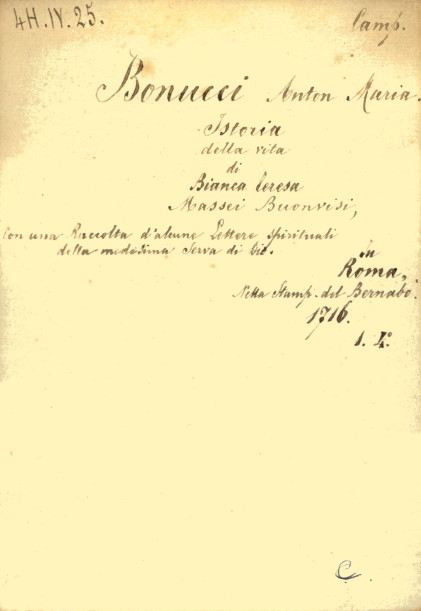 4H.IV.25.
Camp.
Bonucci Anton Maria.
Istoria
della vita
di
Bianca Teresa
Massei Buonvisi,
Con una Raccolta d'alcune Lettere spirituali
della medesima Serva di Dio.
In
Roma,
Nella Stamp. del Bernabò.
1716.
1. 4°
C